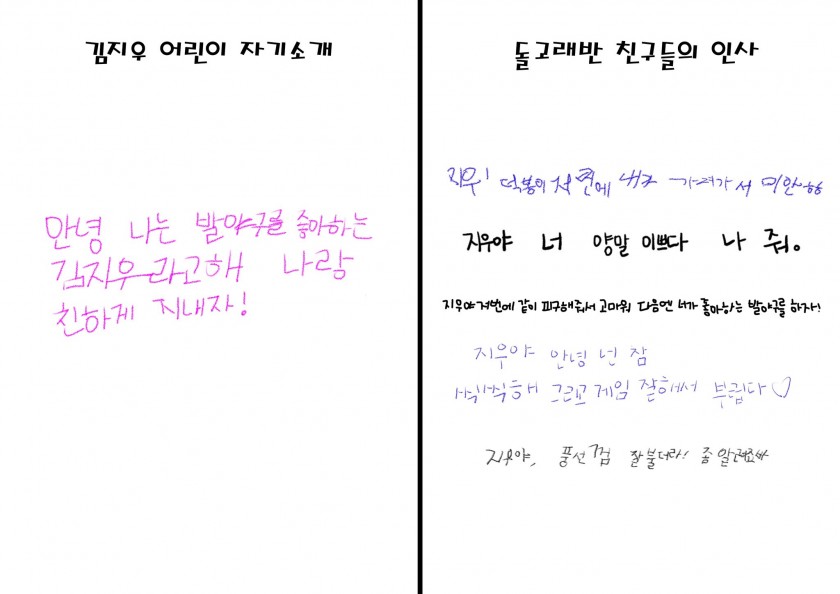 김지우 어린이 자기소개
안녕 나는 발야구를 좋아하는
김지우라고해 나랑
친하게 지내자!
돌고래반 친구들의 인사
지우! 떡볶이 저번에 내가 가져가서 미안해
지우야 너 양말 이쁘다 나 줘.
지우야 저번에 같이 피구해줘서 고마워 다음엔 너가 좋아하는 발야구를 하자!
지우야 안녕 넌 참
씩씩해 그리고 게임 잘해서 부럽다♡
지우야, 풍선껌 잘 불더라! 좀 알려줘봐